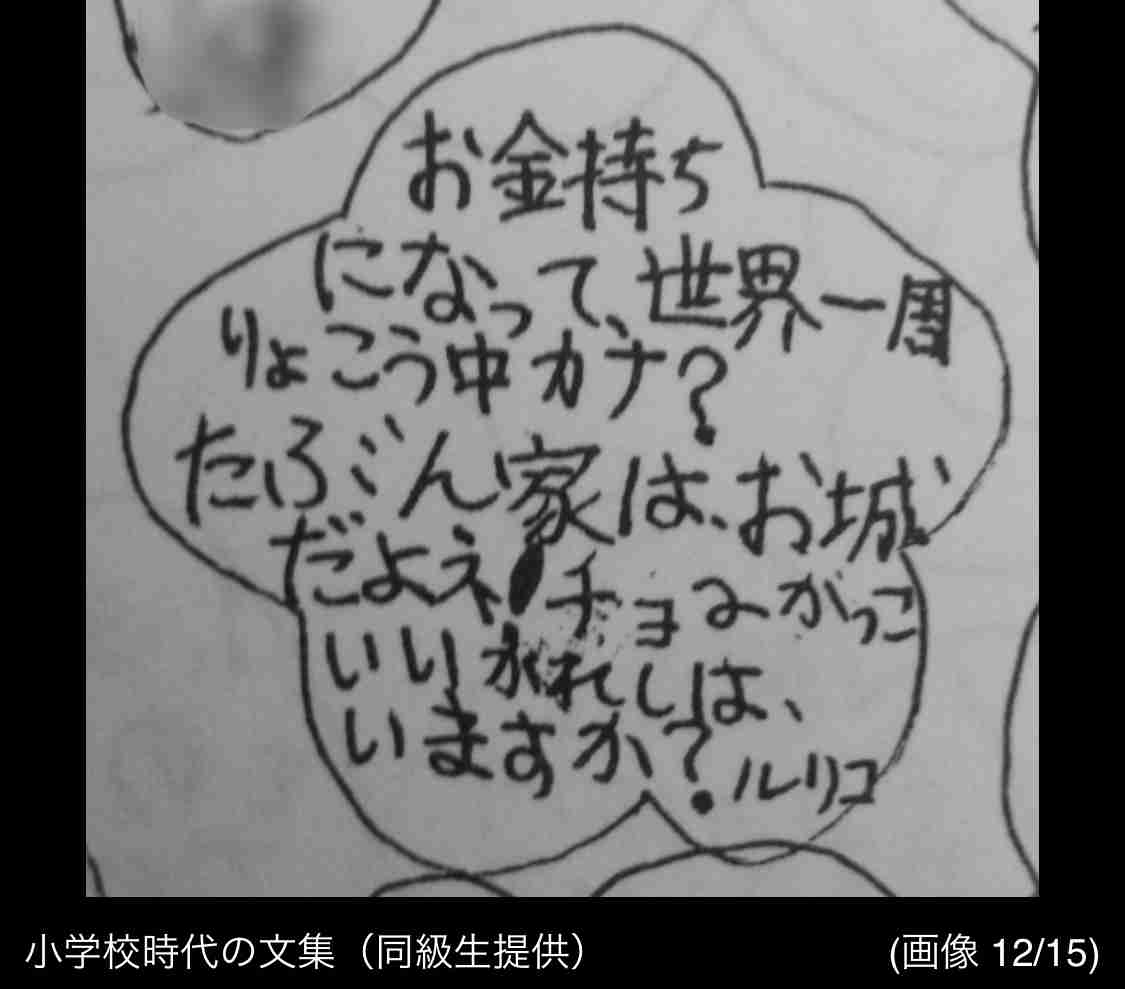 お金持ち
になって、世界一周
りょこう中カナ?
たぶん家は、お城
だよネ!チョーみがっこ
いいかれしは、
いますか?ルリコ
小学校時代の文集（同級生提供）
(画像 12/15)